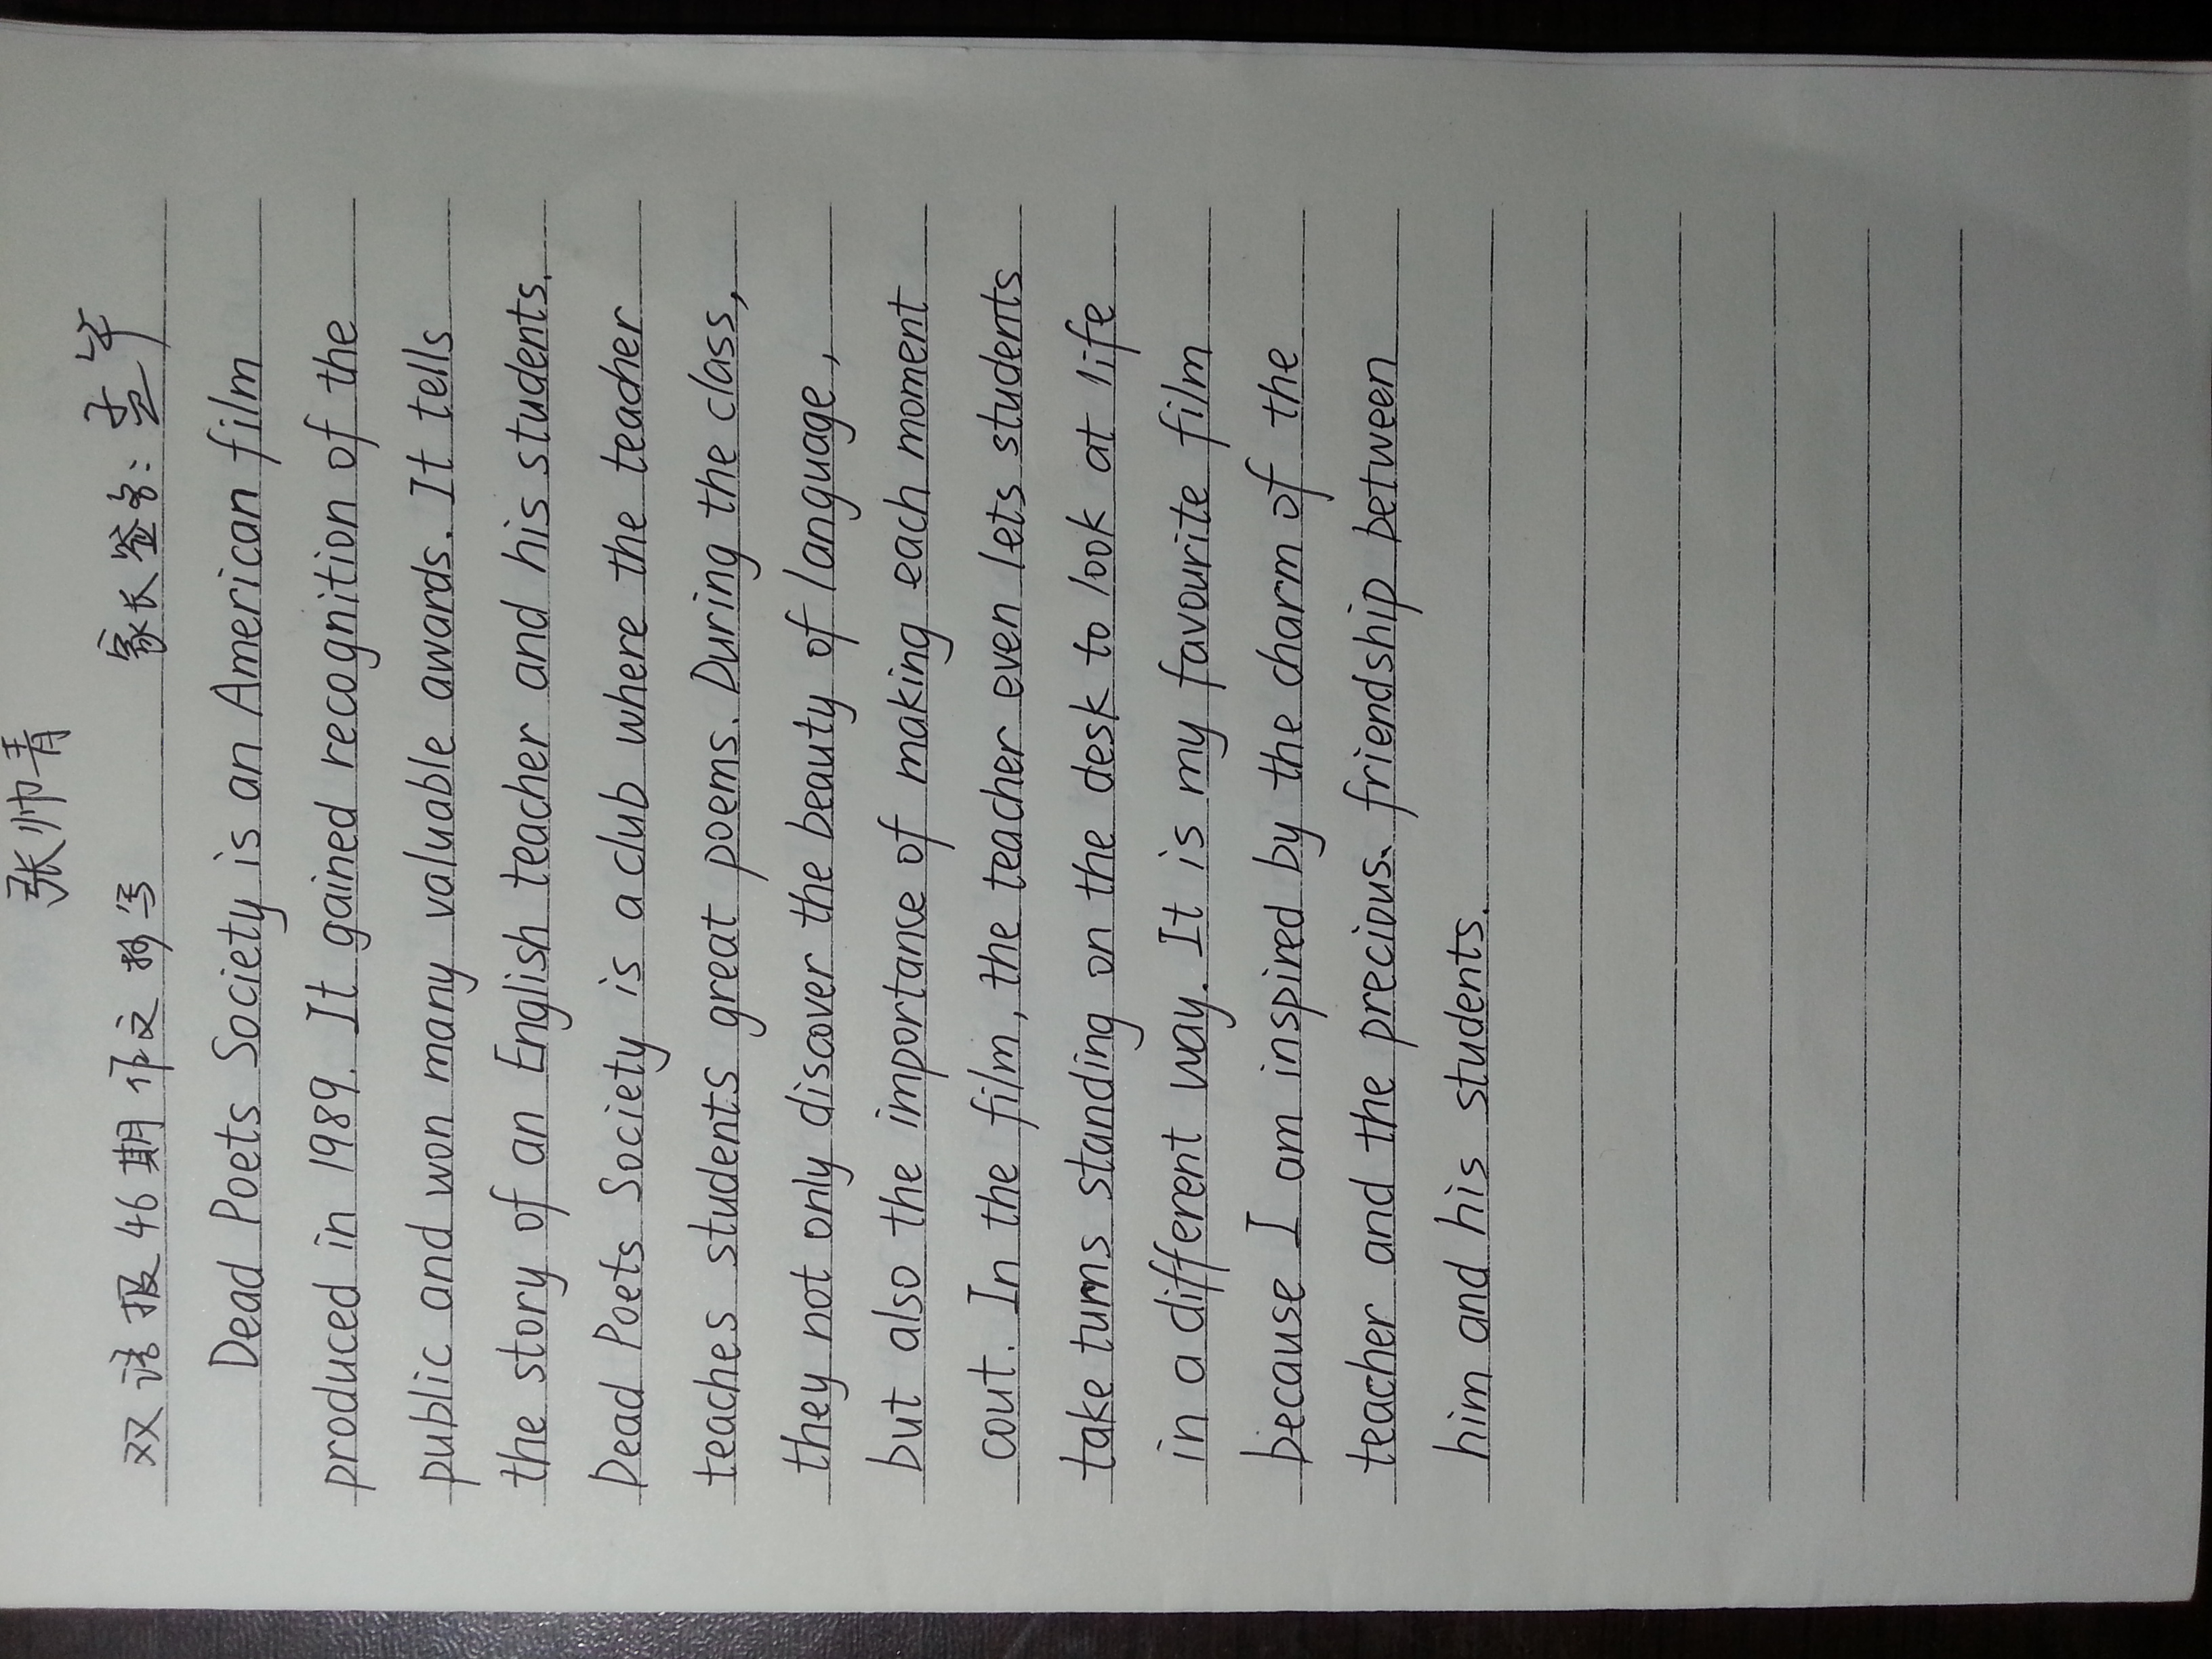 张帅青
双语报46期作文抄写 家长签名: 孟午
Dead Poets Society is an American film
produced in 1989. It gained recognition of the
public and won many valuable awards. It tells
the story of an English teacher and his students.
Dead Poets Society is a club where the teacher
teaches students great poems. During the class,
they not only discover the beauty of language,
but also the importance of making each moment
cout. In the film, the teacher even lets students
take turns standing on the desk to look at life
in a different way. It is my favourite film
because I am inspired by the charm of the
teacher and the precious、friendship between
him and his students.